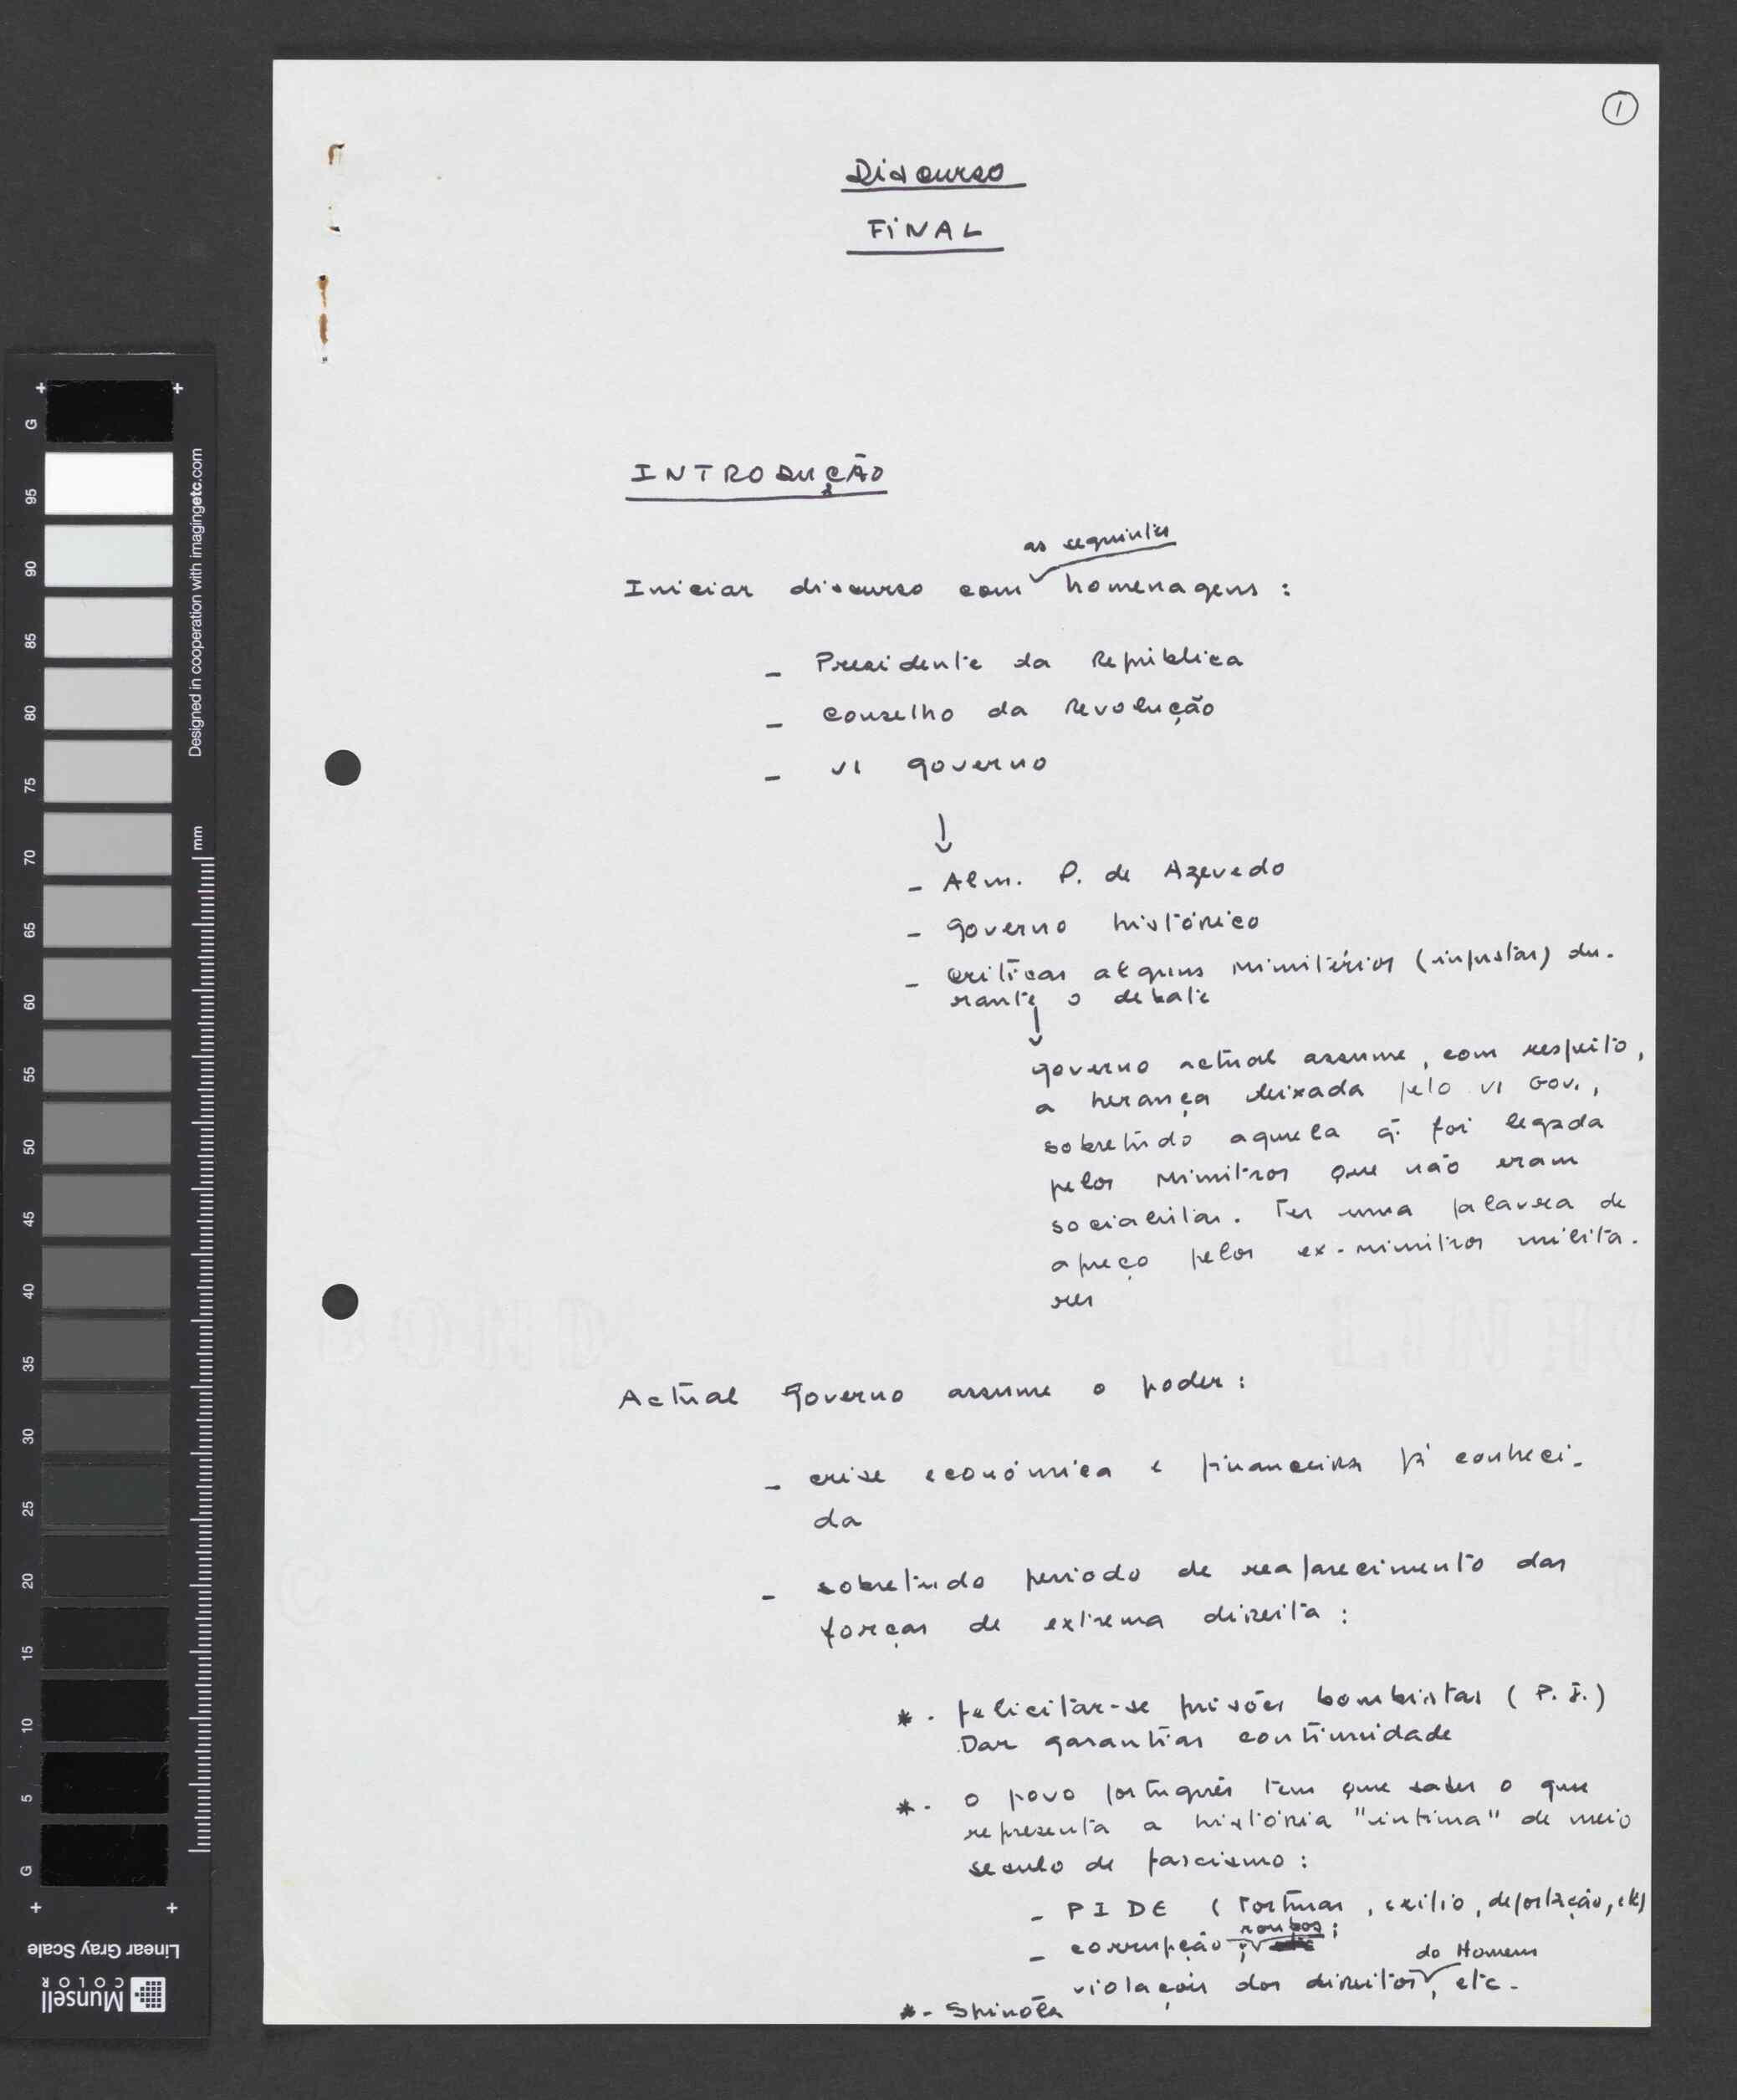 1
Discurso
FINAL
INTRODUÇÃO
as seguintes
Iniciar discurso com homenagens :
- Presidente da República
- Conselho da Revolução
- VI governo
↓
- Alm. P. de Azevedo
- governo histórico
- críticas alguns ministérios (injustas) du-
rante o debate
↓
governo actual assume, com respeito,
a herança deixada pelo VI Gov.,
sobretudo aquela q. foi legada
pelos Ministros que não eram
socialistas. Ter uma palavra de
apreço pelos ex-ministros milita-
res
Actual Governo assume o poder :
- crise económica e financeira já conheci-
da
- sobretudo período de reaparecimento das
forças de extrema direita :
* - felicitar-se prisões bombistas ( P. J. )
Dar garantias continuidade
* - o povo português tem que saber o que
representa a história "íntima" de meio
seculo de fascismo :
- PIDE ( torturas, exílio, deportação, etc)
roubos ;
- corrupção ;
do Homem
violações dos direitos, etc.
* - Spinola
G 95 90 85 80 75 70 65 60 55 50 45 40 35 30 25 20 15 10 5 G
Designed in cooperation with imagingetc.com
mm
Linear Gray Scale
Munsell
COLOR